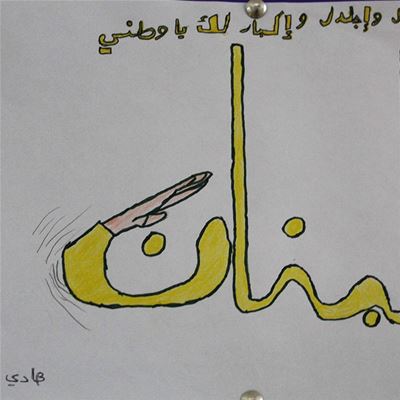 وإجلال وإكبار لك يا وطني
بنان
هادي